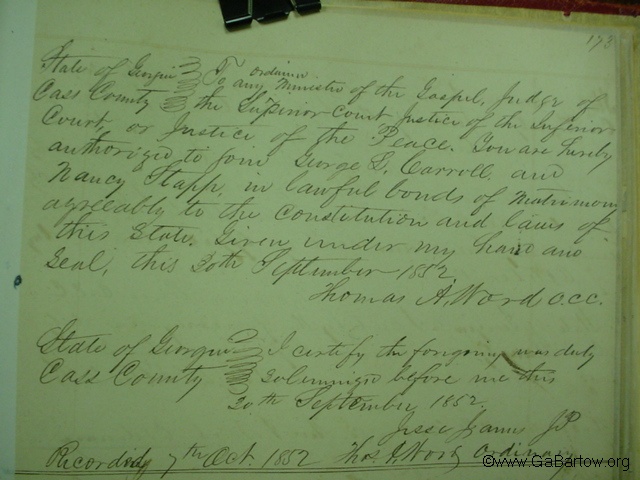 173
State of Georgia } To any ordained Minister of the Gospel, Judge of
Cass County } the Superior Court Justice of the Inferior
Court, or Justice of the Peace. You are hereby
authorized to join George S. Carroll and
Nancy Stapp, in lawful bonds of Matrimony
agreeably to the Constitution and laws of
this State. Given under my hand and
Seal, this 20th September 1852,
Thomas A. Word O.C.C.
State of Georgia } I certify the foregoing was duly
Cass County } Solemnized before me this
20th September 1852.
Jesse James JP
Recorded 7th Oct 1852 Thos. A. Word Ordinary
©www.GaBartow.org